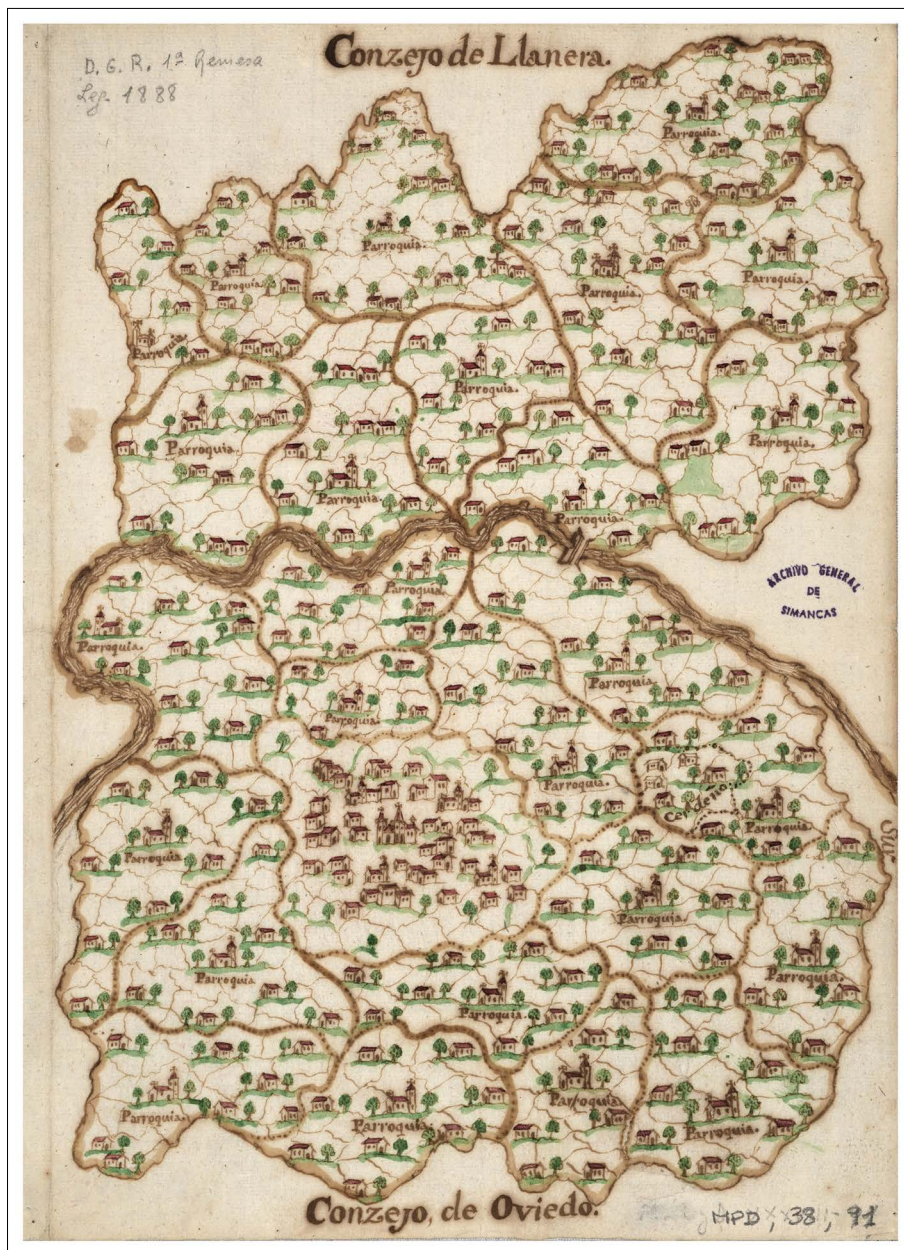 D. G. R. 1ª Remesa
Leg. 1888
Conzejo de Llanera.
Parroquia.
Parroquia.
Parroquia.
Parroquia.
Parroquia.
Parroquia.
Parroquia.
Parroquia.
Parroquia.
Parroquia.
Parroquia.
ARCHIVO GENERAL
DE
SIMANCAS
Parroquia.
Parroquia.
Parroquia.
Parroquia.
Parroquia.
Cerdeño.
Parroquia.
Parroquia.
Parroquia.
Parroquia.
Parroquia
Parroquia.
Parroquia.
Parroquia.
Parroquia.
Parroquia.
Conzejo, de Oviedo.
MPD, 38, 91